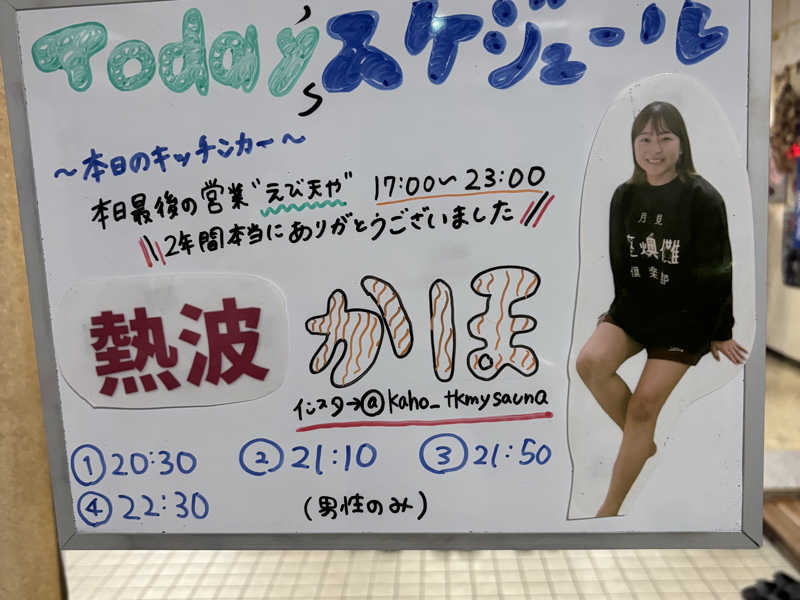 Today'sスケジュール
～本日のキッチンカー～
本日最後の営業"えび天や" 17:00～23:00
2年間本当にありがとうございました
熱波 かほ
インスタ→@kaho_tkmysauna
①20:30 ②21:10 ③21:50
④22:30 (男性のみ)
月見
倶楽部